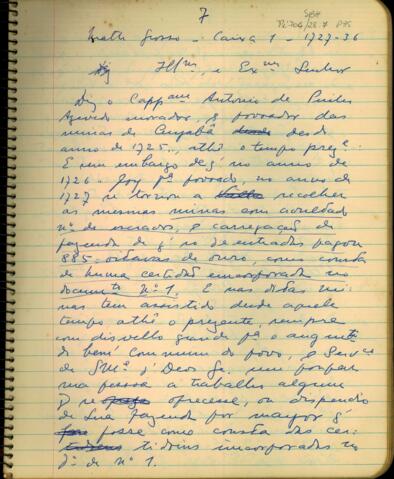 7
SBH
Pi 704/28.7 P75
Matto Grosso - Caixa 1 - 1727-36
Illmo. e Exmo. Senhor
Diz o Cappam Antonio de Pinho
Azevedo morador, e povoador das
minas de Cuyabá desde
anno de 1725, athé o tempo prezte.
E sem embargo de q' no anno de
1726 foy pª povoado, no anno de
1727 se tornou a recolher
as mesmas minas com
no. de escravos, e carregação de
fazenda de q' só de entradas pagou
885 oitavas de ouro, como consta
de huma certidão emcorporada no
documto. Nº 1. E nas ditas mi-
nas tem assistido desde aquele
tempo athé o prezente, sempre
com disvello grande pª o augmto.
do bem Commum do povo, e Serv.
de S.Mde. q' Deos Ge. sem poupar
sua pessoa a trabalho algum
q' se oferecese, ou dispendio
de sua fazenda por mayor q'
fosse como consta das cer-
tidoins incorporadas no
do. de nº 1.